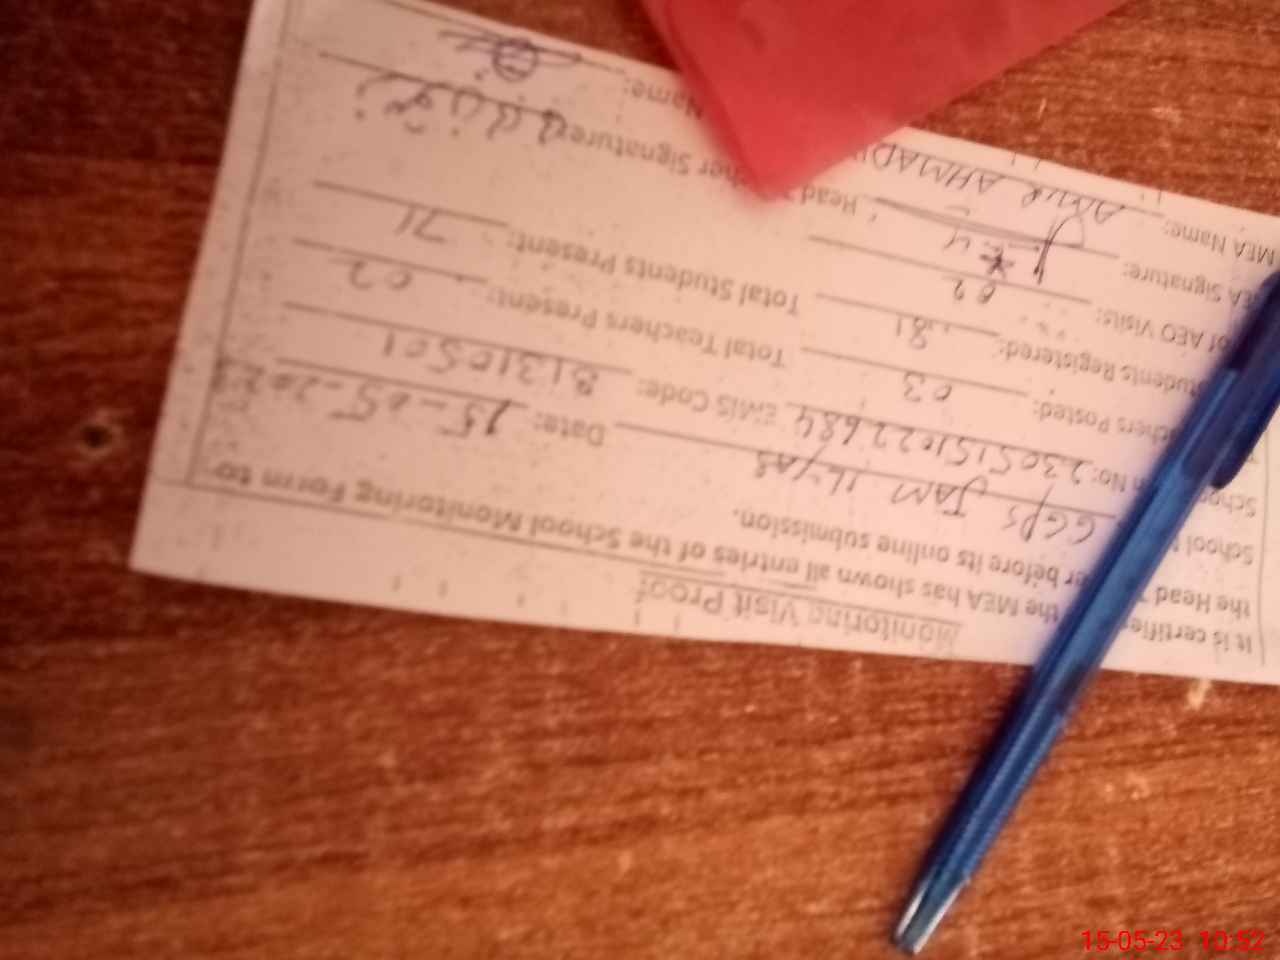 Monitoring Visit Proof
It is certifie the MEA has shown all entries of the School Monitoring Form to
the Head er before its online submission.
School GGPS JAM ILYAS Date: 15-05-2023
No: 2305151022684 EMIS Code: 31310501
chers Posted: 03 Total Teachers Present: 02
Students Registered: 81 Total Students Present: 71
of AEO Visits: 02
EA Signature: Head her Signature:
MEA Name: AHMAD Name:
15-05-23 10:52